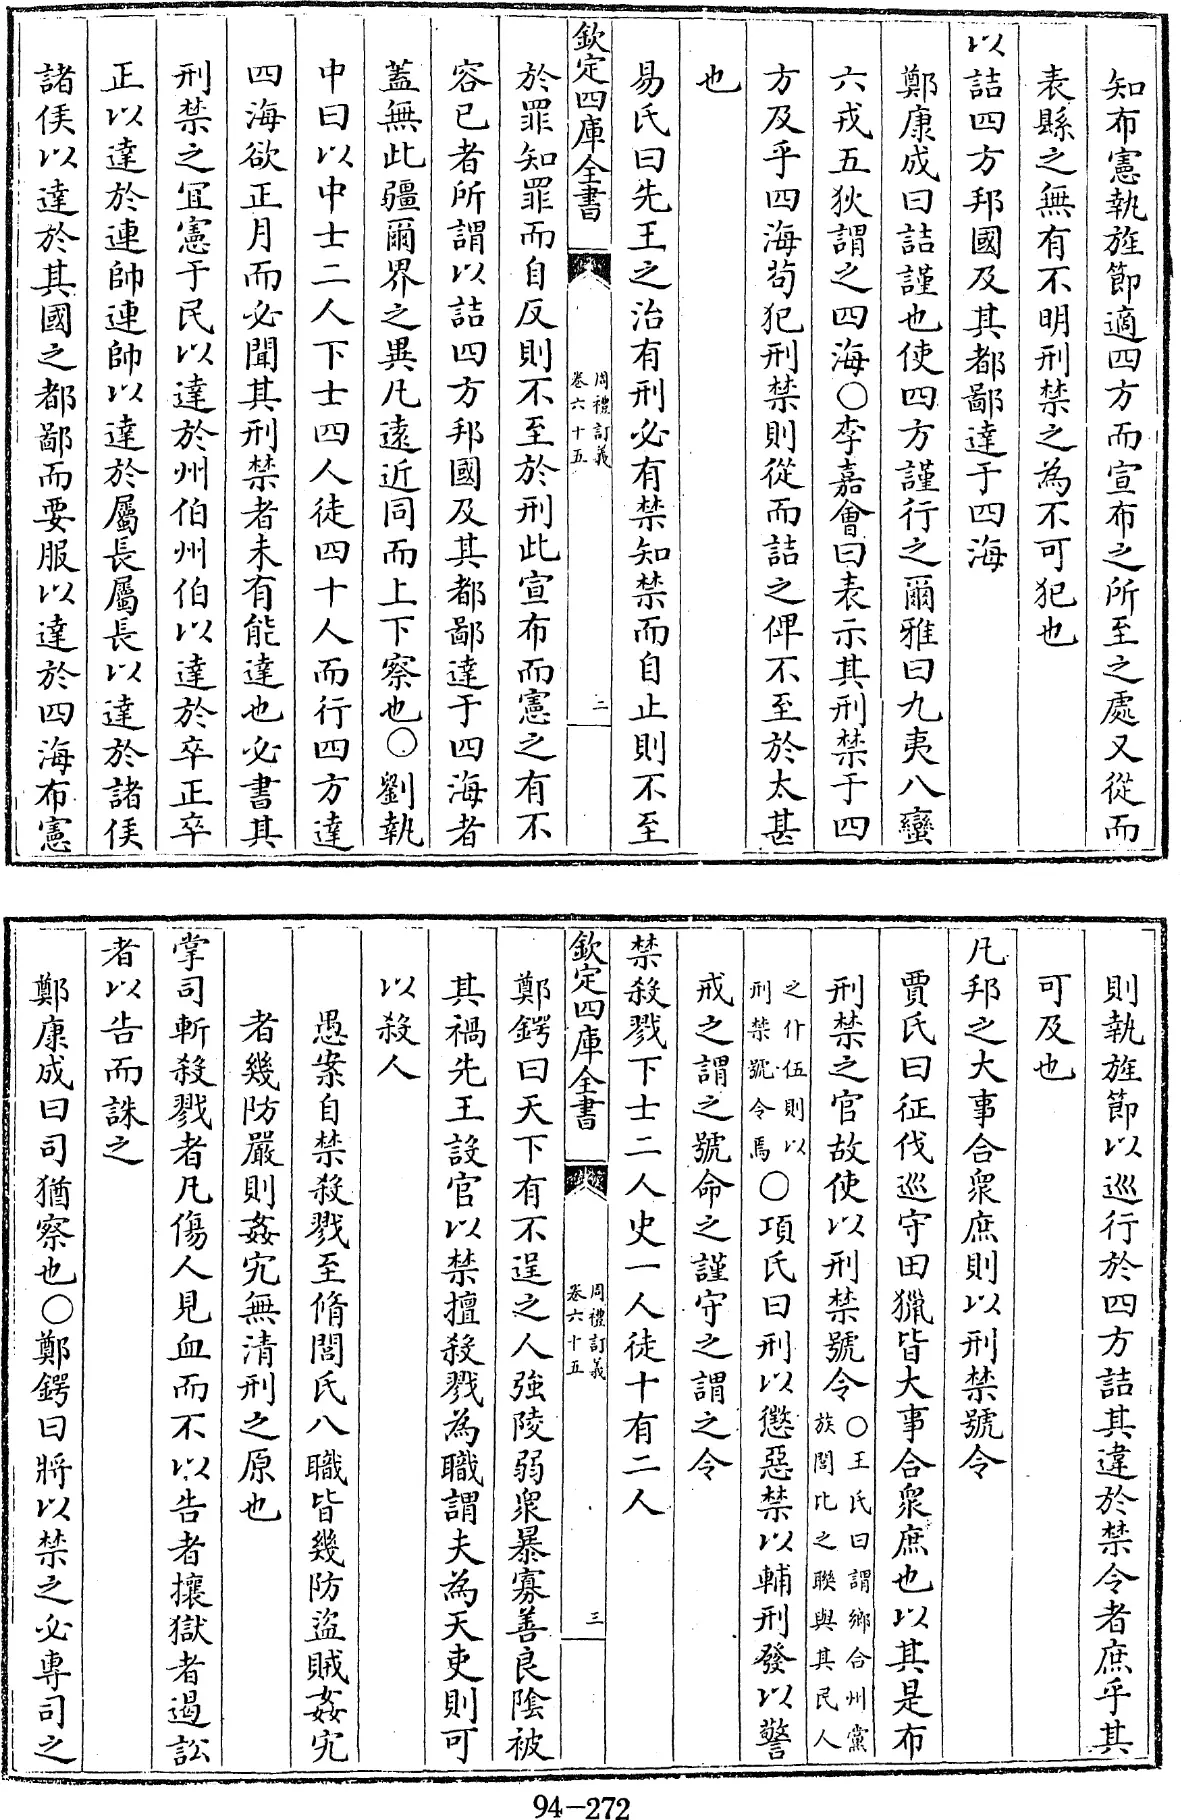 知布憲執旌節適四方而宣布之所至之處又從而
表縣之無有不明刑禁之為不可犯也
以詰四方邦國及其都鄙達于四海
鄭康成曰詰謹也使四方謹行之爾雅曰九夷八蠻
六戎五狄謂之四海○李嘉會曰表示其刑禁于四
方及乎四海茍犯刑禁則從而詰之俾不至於太甚
也
易氏曰先王之治有刑必有禁知禁而自止則不至
欽定四庫全書
周禮訂義
卷六十五
二
於罪知罪而自反則不至於刑此宣布而憲之有不
容已者所謂以詰四方邦國及其都鄙達于四海者
蓋無此疆爾界之異凡遠近同而上下察也○劉執
中曰以中士二人下士四人徒四十人而行四方達
四海欲正月而必聞其刑禁者未有能達也必書其
刑禁之宜憲于民以達於州伯州伯以達於卒正卒
正以達於連帥連帥以達於屬長屬長以達於諸侯
諸侯以達於其國之都鄙而要服以達於四海布憲
則執旌節以巡行於四方詰其違於禁令者庶乎其
可及也
凡邦之大事合衆庶則以刑禁號令
賈氏曰征伐巡守田獵皆大事合衆庶也以其是布
刑禁之官故使以刑禁號令○王氏曰謂鄉合州黨
族閭比之聯與其民人
之什伍則以
刑禁號令焉○項氏曰刑以懲惡禁以輔刑發以警
戒之謂之號命之謹守之謂之令
禁殺戮下士二人史一人徒十有二人
欽定四庫全書
周禮訂義
卷六十五
三
鄭鍔曰天下有不逞之人強陵弱衆暴寡善良陰被
其禍先王設官以禁擅殺戮為職謂夫為天吏則可
以殺人
愚案自禁殺戮至脩閭氏八職皆幾防盜賊姦宄
者幾防嚴則姦宄無清刑之原也
掌司斬殺戮者凡傷人見血而不以告者攘獄者遏訟
者以告而誅之
鄭康成曰司猶察也○鄭鍔曰將以禁之必專司之
94-272